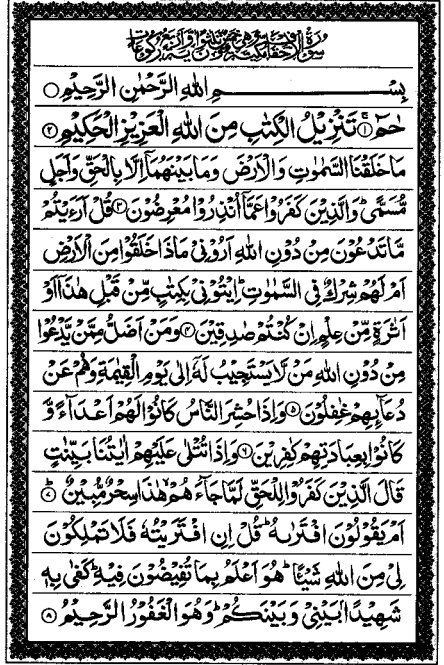 سُوْرَةُ الْاَحْقَافِ مَكِّيَّةٌ
بِسْمِ اللهِ الرَّحْمٰنِ الرَّحِيْمِ
حٰمٓ ۚ﴿۱﴾ تَنْزِيْلُ الْكِتٰبِ مِنَ اللهِ الْعَزِيْزِ الْحَكِيْمِ ﴿۲﴾
مَا خَلَقْنَا السَّمٰوٰتِ وَالْاَرْضَ وَمَا بَيْنَهُمَاۤ اِلَّا بِالْحَقِّ وَاَجَلٍ
مُّسَمًّى ؕ وَالَّذِيْنَ كَفَرُوْا عَمَّاۤ اُنْذِرُوْا مُعْرِضُوْنَ ﴿۳﴾ قُلْ اَرَءَيْتُمْ
مَّا تَدْعُوْنَ مِنْ دُوْنِ اللهِ اَرُوْنِيْ مَاذَا خَلَقُوْا مِنَ الْاَرْضِ
اَمْ لَهُمْ شِرْكٌ فِي السَّمٰوٰتِ ؕ اِيْتُوْنِيْ بِكِتٰبٍ مِّنْ قَبْلِ هٰذَاۤ اَوْ
اَثٰرَةٍ مِّنْ عِلْمٍ اِنْ كُنْتُمْ صٰدِقِيْنَ ﴿۴﴾ وَمَنْ اَضَلُّ مِمَّنْ يَّدْعُوْا
مِنْ دُوْنِ اللهِ مَنْ لَّا يَسْتَجِيْبُ لَهٗۤ اِلٰى يَوْمِ الْقِيٰمَةِ وَهُمْ عَنْ
دُعَآئِهِمْ غٰفِلُوْنَ ﴿۵﴾ وَاِذَا حُشِرَ النَّاسُ كَانُوْا لَهُمْ اَعْدَآءً وَّ
كَانُوْا بِعِبَادَتِهِمْ كٰفِرِيْنَ ﴿۶﴾ وَاِذَا تُتْلٰى عَلَيْهِمْ اٰيٰتُنَا بَيِّنٰتٍ
قَالَ الَّذِيْنَ كَفَرُوْا لِلْحَقِّ لَمَّا جَآءَهُمْ ۙ هٰذَا سِحْرٌ مُّبِيْنٌ ؕ﴿۷﴾
اَمْ يَقُوْلُوْنَ افْتَرٰىهُ ؕ قُلْ اِنِ افْتَرَيْتُهٗ فَلَا تَمْلِكُوْنَ
لِيْ مِنَ اللهِ شَيْـًٔا ؕ هُوَ اَعْلَمُ بِمَا تُفِيْضُوْنَ فِيْهِ ؕ كَفٰى بِهٖ
شَهِيْدًۢا بَيْنِيْ وَبَيْنَكُمْ ؕ وَهُوَ الْغَفُوْرُ الرَّحِيْمُ ﴿۸﴾